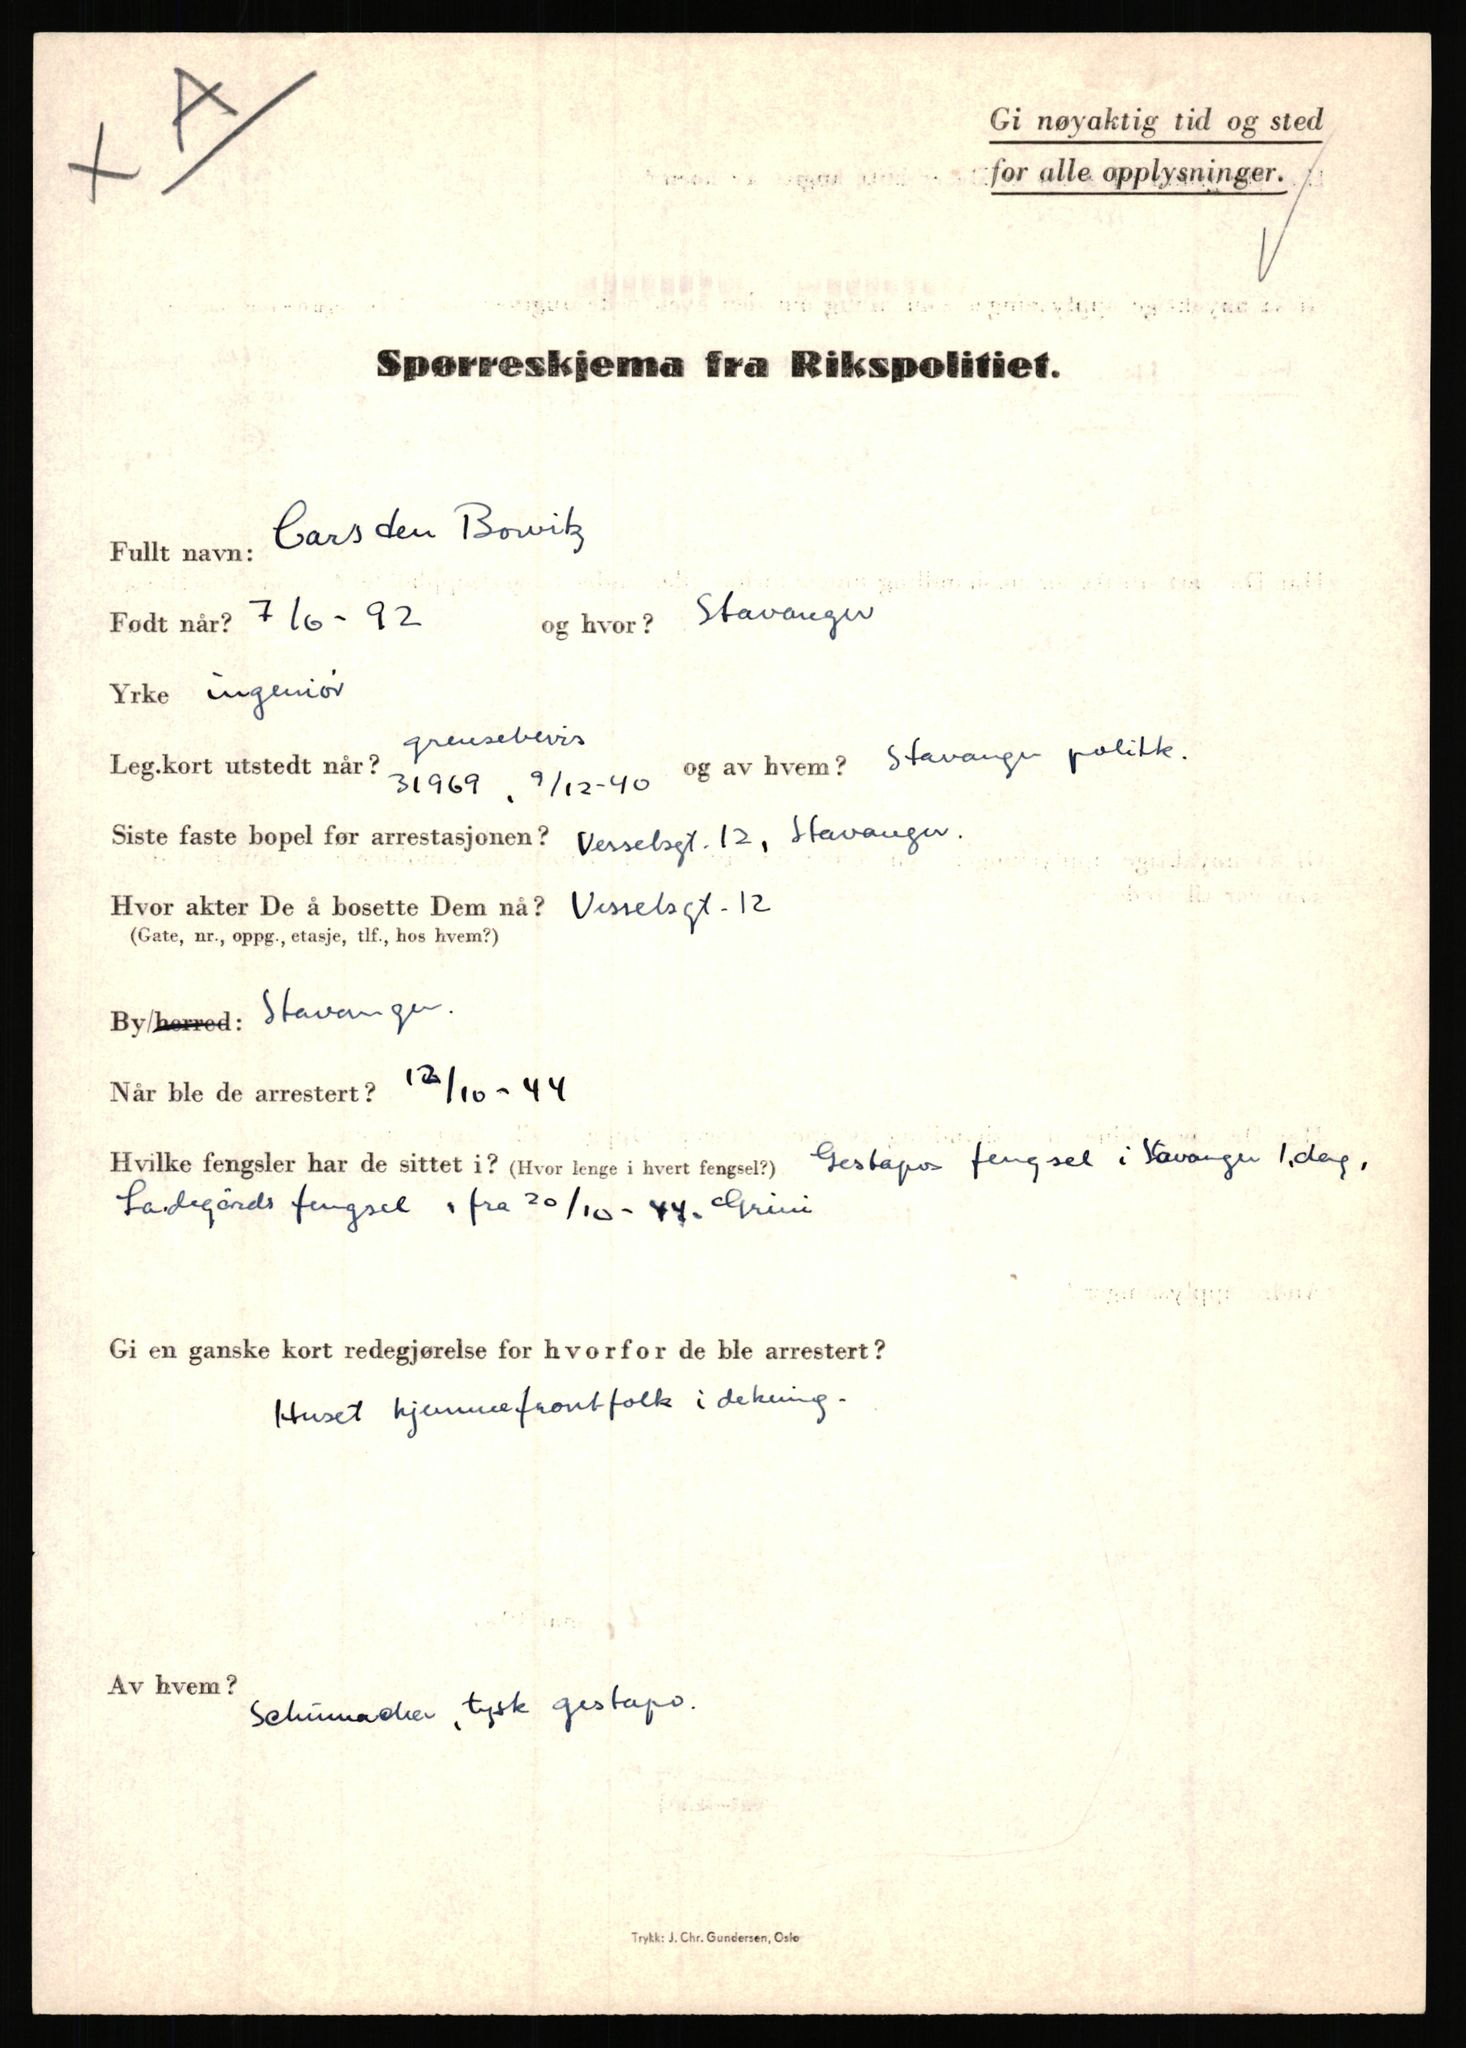 A
Gi nøyaktig tid og sted
for alle opplysninger.
Spørreskjema fra Rikspolitiet.
Fullt navn: Carsden Borvitz
Født når? 7/6 - 92 og hvor? Stavanger
Yrke ingeniør
grensebevis
Leg.kort utstedt når? 31969, 9/12-40 og av hvem? Stavanger politk.
Siste faste bopel før arrestasjonen? Vesselsgt. 12, Stavanger.
Hvor akter De å bosette Dem nå? Vesselsgt. 12
(Gate, nr., oppg., etasje, tlf., hos hvem?)
By/herred: Stavanger.
Når ble de arrestert? 12/10 - 44
Hvilke fengsler har de sittet i? (Hvor lenge i hvert fengsel?) Gestapos fengsel i Stavanger 1. dag,
Ladegårds fengsel, fra 20/10 - 44. Grini
Gi en ganske kort redegjørelse for hvorfor de ble arrestert?
Huset hjemmefrontfolk i dekning.
Av hvem?
Schumacher, tysk gestapo.
Trykk: J. Chr. Gundersen, Oslo